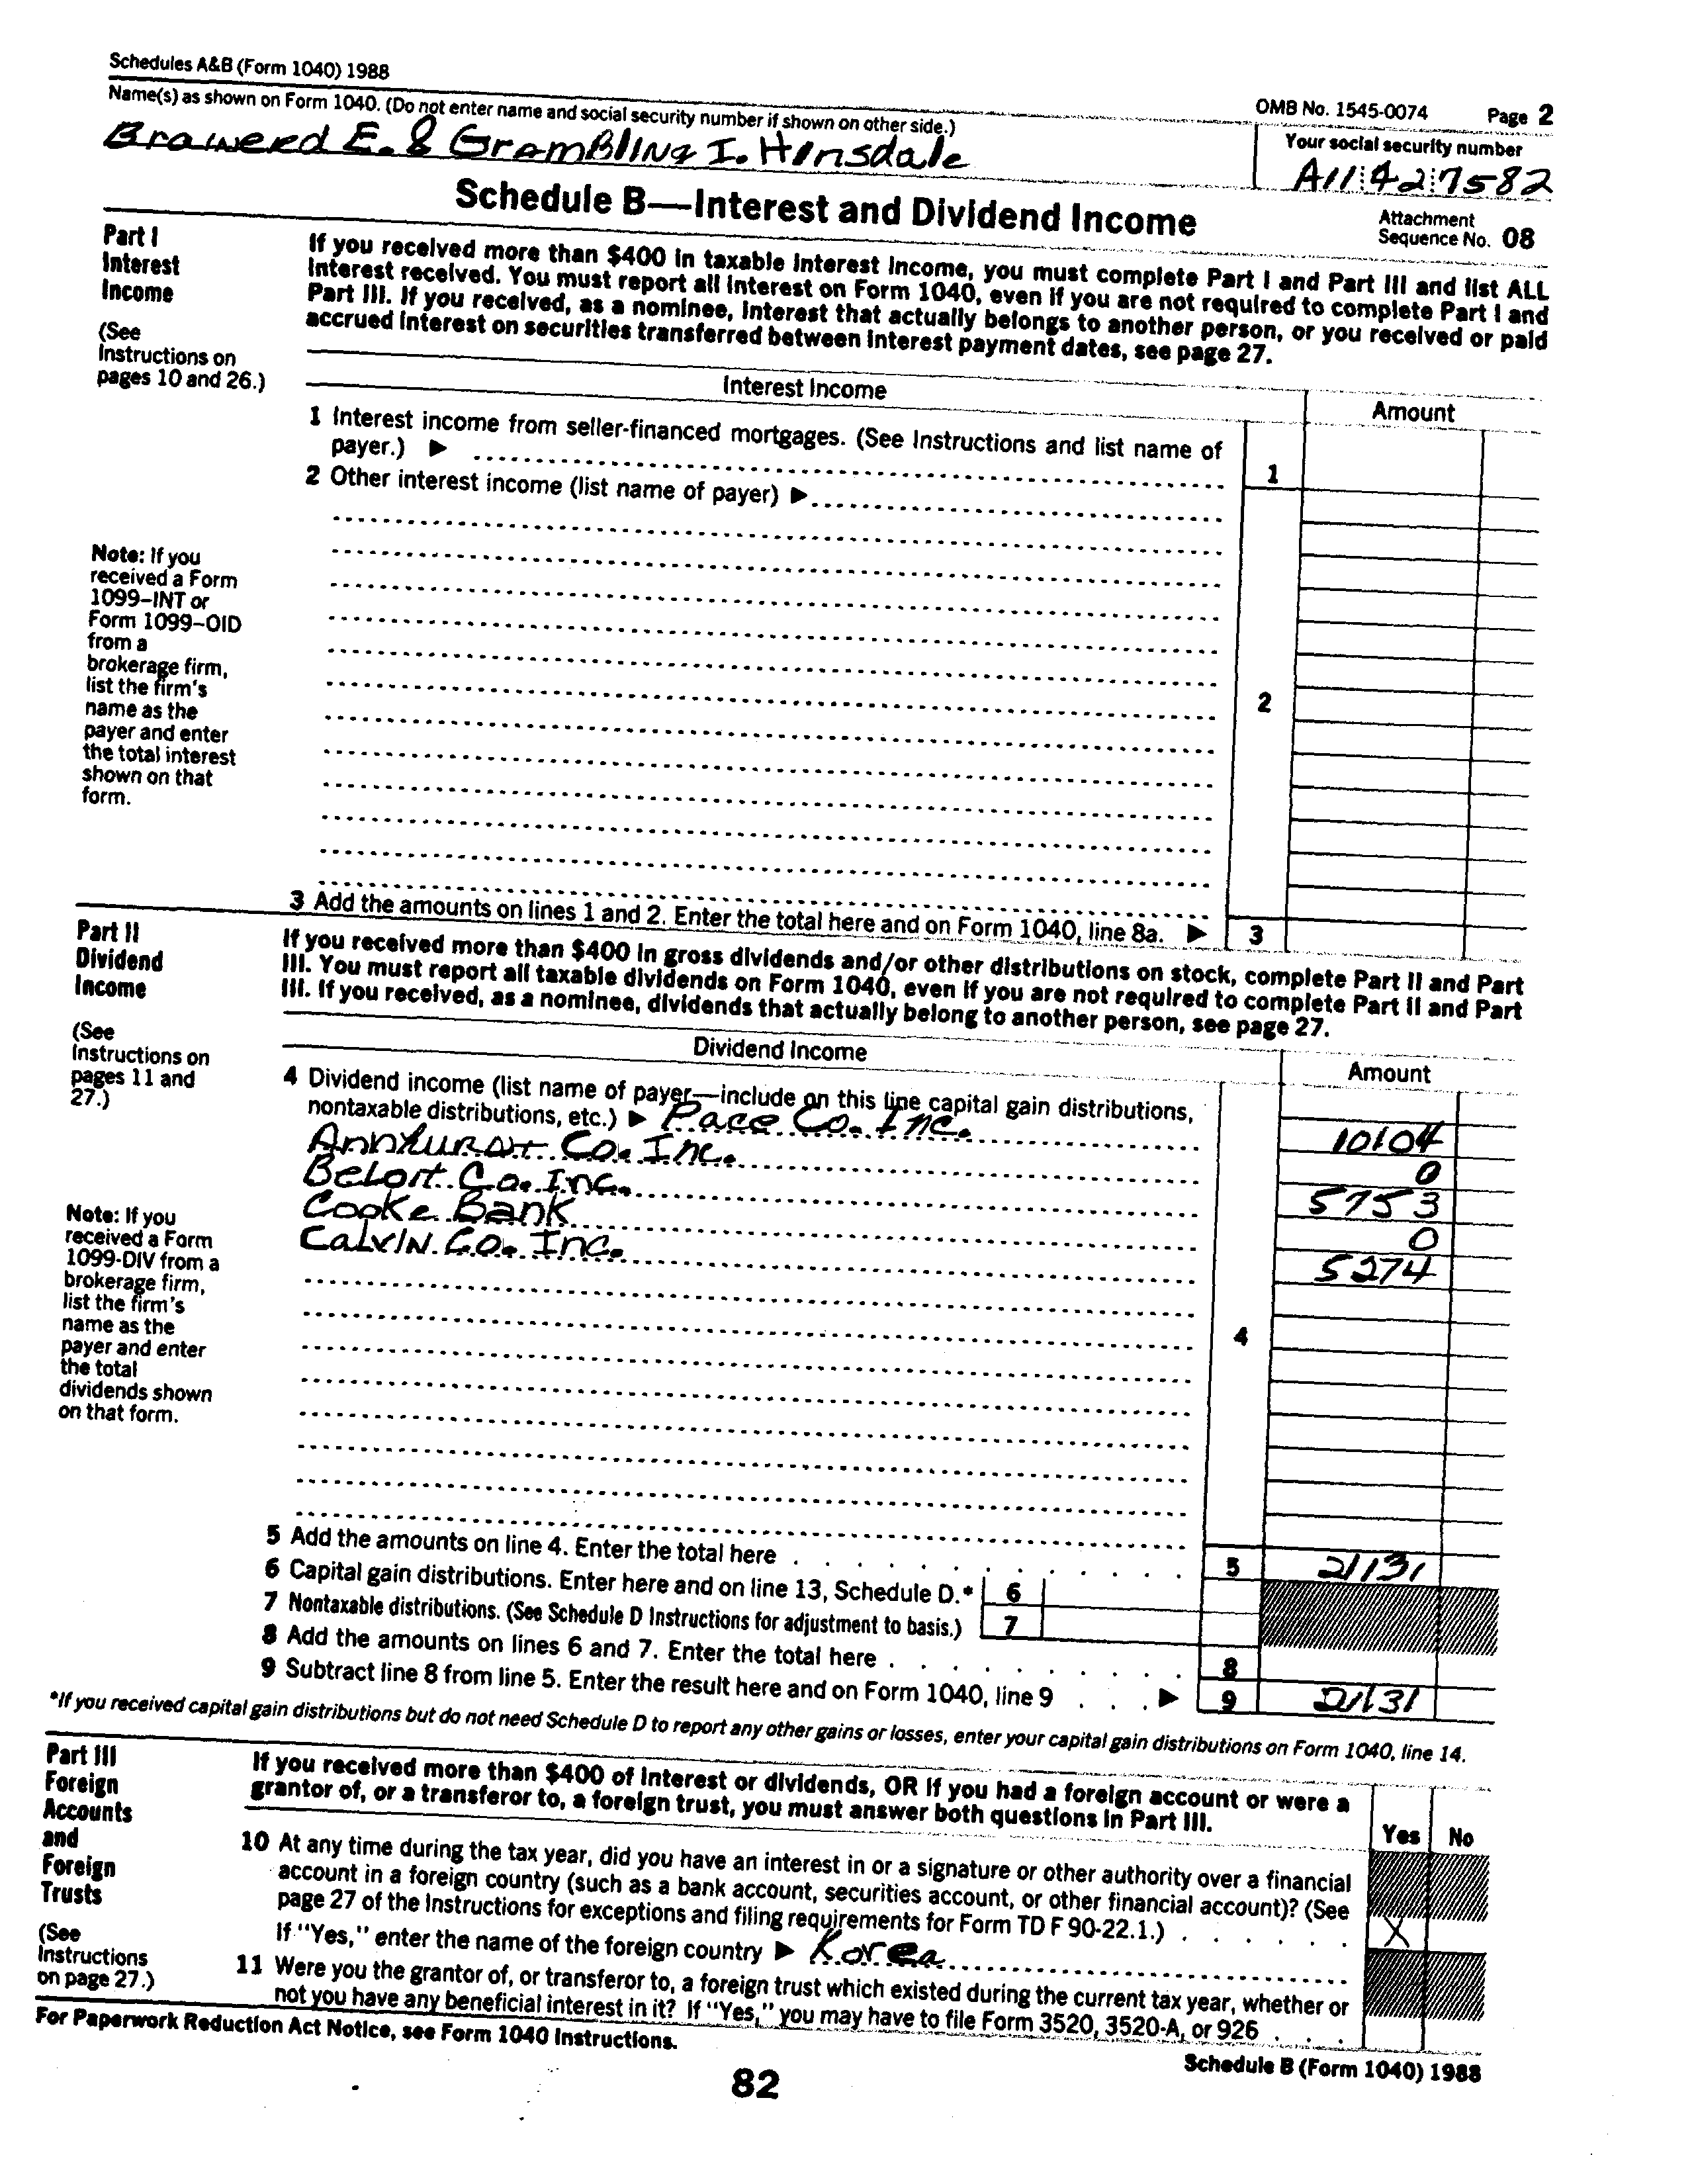 Schedules A&B (Form 1040) 1988
OMB No. 1545-0074 Page 2
Name(s) as shown on Form 1040. (Do not enter name and social security number if shown on other side.)
Your social security number
Braweed E. & GramBling I. Hinsdale
A11 42 7582
Schedule B—Interest and Dividend Income
Attachment
Sequence No. 08
Part I
Interest
Income
(See
Instructions on
pages 10 and 26.)
If you received more than $400 in taxable interest income, you must complete Part I and Part III and list ALL
interest received. You must report all interest on Form 1040, even if you are not required to complete Part I and
Part III. If you received, as a nominee, interest that actually belongs to another person, or you received or paid
accrued interest on securities transferred between interest payment dates, see page 27.
Interest Income
Amount
1 Interest income from seller-financed mortgages. (See Instructions and list name of
payer.) ▶
1
2 Other interest income (list name of payer) ▶
Note: If you
received a Form
1099–INT or
Form 1099–OID
from a
brokerage firm,
list the firm's
name as the
payer and enter
the total interest
shown on that
form.
2
3 Add the amounts on lines 1 and 2. Enter the total here and on Form 1040, line 8a. ▶ 3
Part II
Dividend
Income
(See
Instructions on
pages 11 and
27.)
If you received more than $400 in gross dividends and/or other distributions on stock, complete Part II and Part
III. You must report all taxable dividends on Form 1040, even if you are not required to complete Part II and Part
III. If you received, as a nominee, dividends that actually belong to another person, see page 27.
Dividend Income
Amount
4 Dividend income (list name of payer—include on this line capital gain distributions,
nontaxable distributions, etc.) ▶ Pace Co. Inc. 10104
Annhurst Co. Inc. 0
Beloit Co. Inc. 5753
Cooke Bank 0
Calvin Co. Inc. 5274
Note: If you
received a Form
1099-DIV from a
brokerage firm,
list the firm's
name as the
payer and enter
the total
dividends shown
on that form.
4
5 Add the amounts on line 4. Enter the total here 5 21131
6 Capital gain distributions. Enter here and on line 13, Schedule D.* 6
7 Nontaxable distributions. (See Schedule D Instructions for adjustment to basis.) 7
8 Add the amounts on lines 6 and 7. Enter the total here 8
9 Subtract line 8 from line 5. Enter the result here and on Form 1040, line 9 ▶ 9 21131
*If you received capital gain distributions but do not need Schedule D to report any other gains or losses, enter your capital gain distributions on Form 1040, line 14.
Part III
Foreign
Accounts
and
Foreign
Trusts
(See
Instructions
on page 27.)
If you received more than $400 of interest or dividends, OR if you had a foreign account or were a
grantor of, or a transferor to, a foreign trust, you must answer both questions in Part III.
Yes No
10 At any time during the tax year, did you have an interest in or a signature or other authority over a financial
account in a foreign country (such as a bank account, securities account, or other financial account)? (See
page 27 of the Instructions for exceptions and filing requirements for Form TD F 90-22.1.) X
If "Yes," enter the name of the foreign country ▶ Korea
11 Were you the grantor of, or transferor to, a foreign trust which existed during the current tax year, whether or
not you have any beneficial interest in it? If "Yes," you may have to file Form 3520, 3520-A, or 926
For Paperwork Reduction Act Notice, see Form 1040 Instructions.
Schedule B (Form 1040) 1988
82